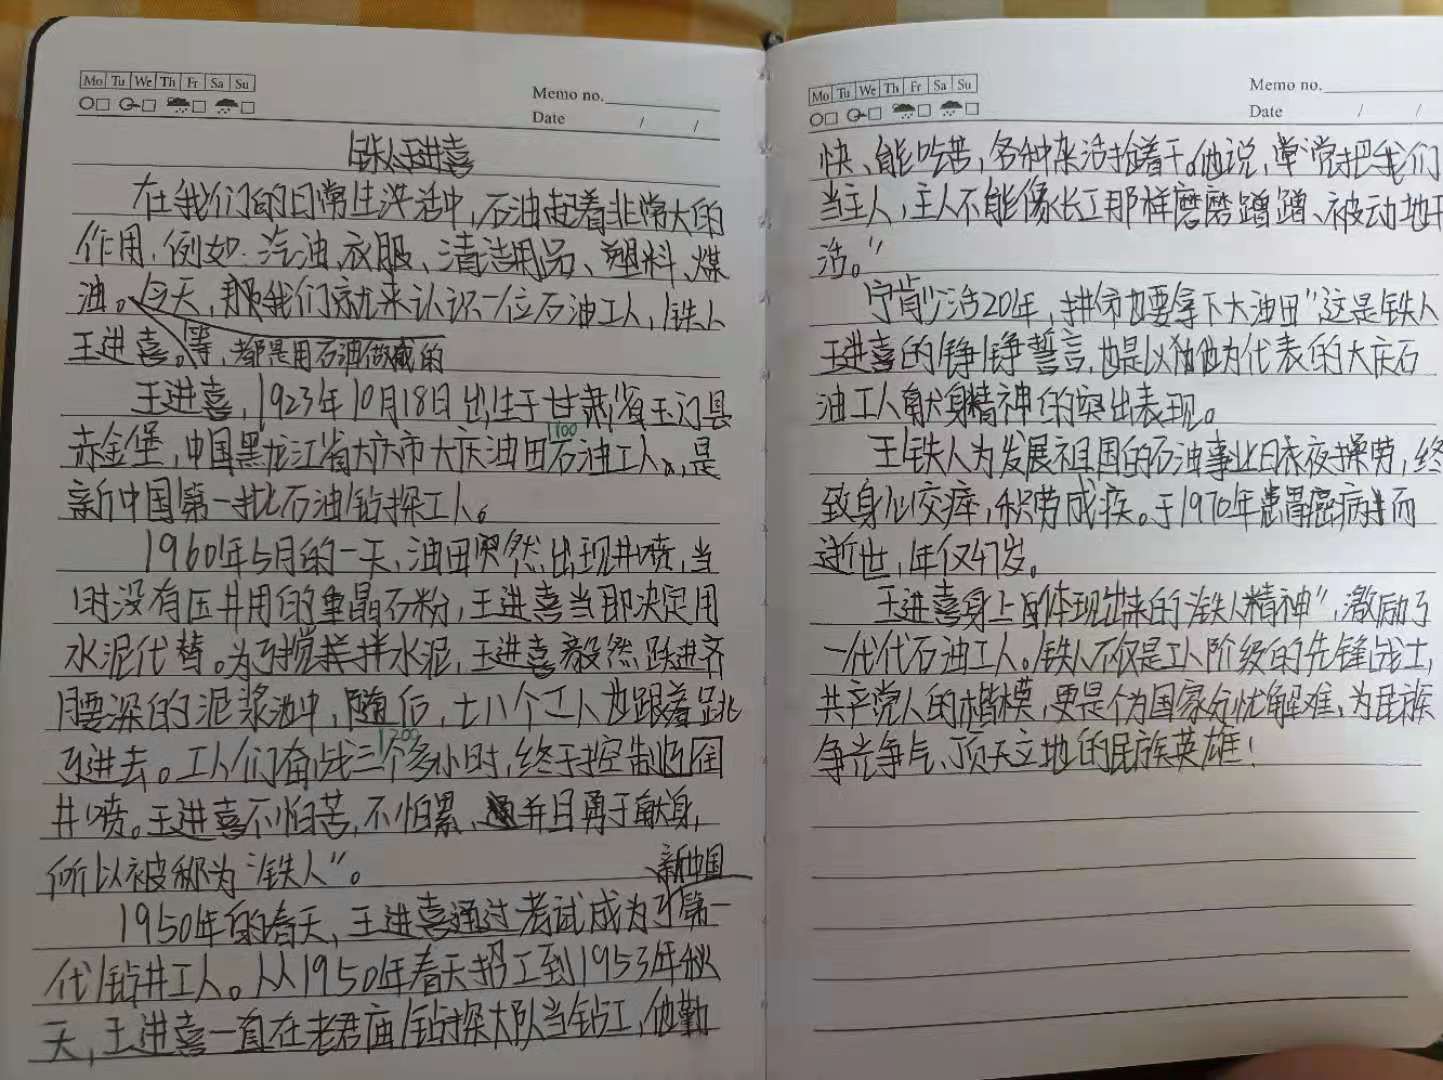 Mo Tu We Th Fr Sa Su
Memo no.
Date / /
铁人王进喜
在我们的日常生活中,石油起着非常大的
作用.例如:汽油、衣服、清洁用品、塑料、煤
油。今天,那我们就来认识一位石油工人,铁人
王进喜。等,都是用石油做成的
王进喜,1923年10月18日出生于甘肃省玉门县
100
赤金堡,中国黑龙江省大庆市大庆油田石油工人。,是
新中国第一批石油钻探工人。
1960年5月的一天,油田突然出现井喷,当
时没有压井用的重晶石粉,王进喜当即决定用
水泥代替。为了搅拌水泥,王进喜毅然跃进齐
腰深的泥浆池中,随后,七八个工人也跟着跳
200
了进去。工人们奋战三个多小时,终于控制
井喷。王进喜不怕苦,不怕累、并且勇于献身,
所以被称为“铁人”。
新中国
1950年的春天,王进喜通过考试成为了第一
代钻井工人。从1950年春天招工到1953年秋
天,王进喜一直在老君庙钻探大队当钻工,他勤
Mo Tu We Th Fr Sa Su
Memo no.
Date / /
快、能吃苦,各种杂活抢着干。他说,“党把我们
当主人,主人不能像长工那样磨磨蹭蹭、被动地干
活。”
宁肯少活20年,拼命也要拿下大油田”这是铁人
王进喜的铮铮誓言,也是以他为代表的大庆石
油工人献身精神的突出表现。
王铁人为发展祖国的石油事业日夜操劳,终
致身心交瘁,积劳成疾。于1970年患胃癌病逝而
逝世,年仅47岁。
王进喜身上体现出来的“铁人精神”,激励了
一代代石油工人。铁人不仅是工人阶级的先锋战士,
共产党人的楷模,更是个为国家分忧解难、为民族
争光争气、顶天立地的民族英雄!